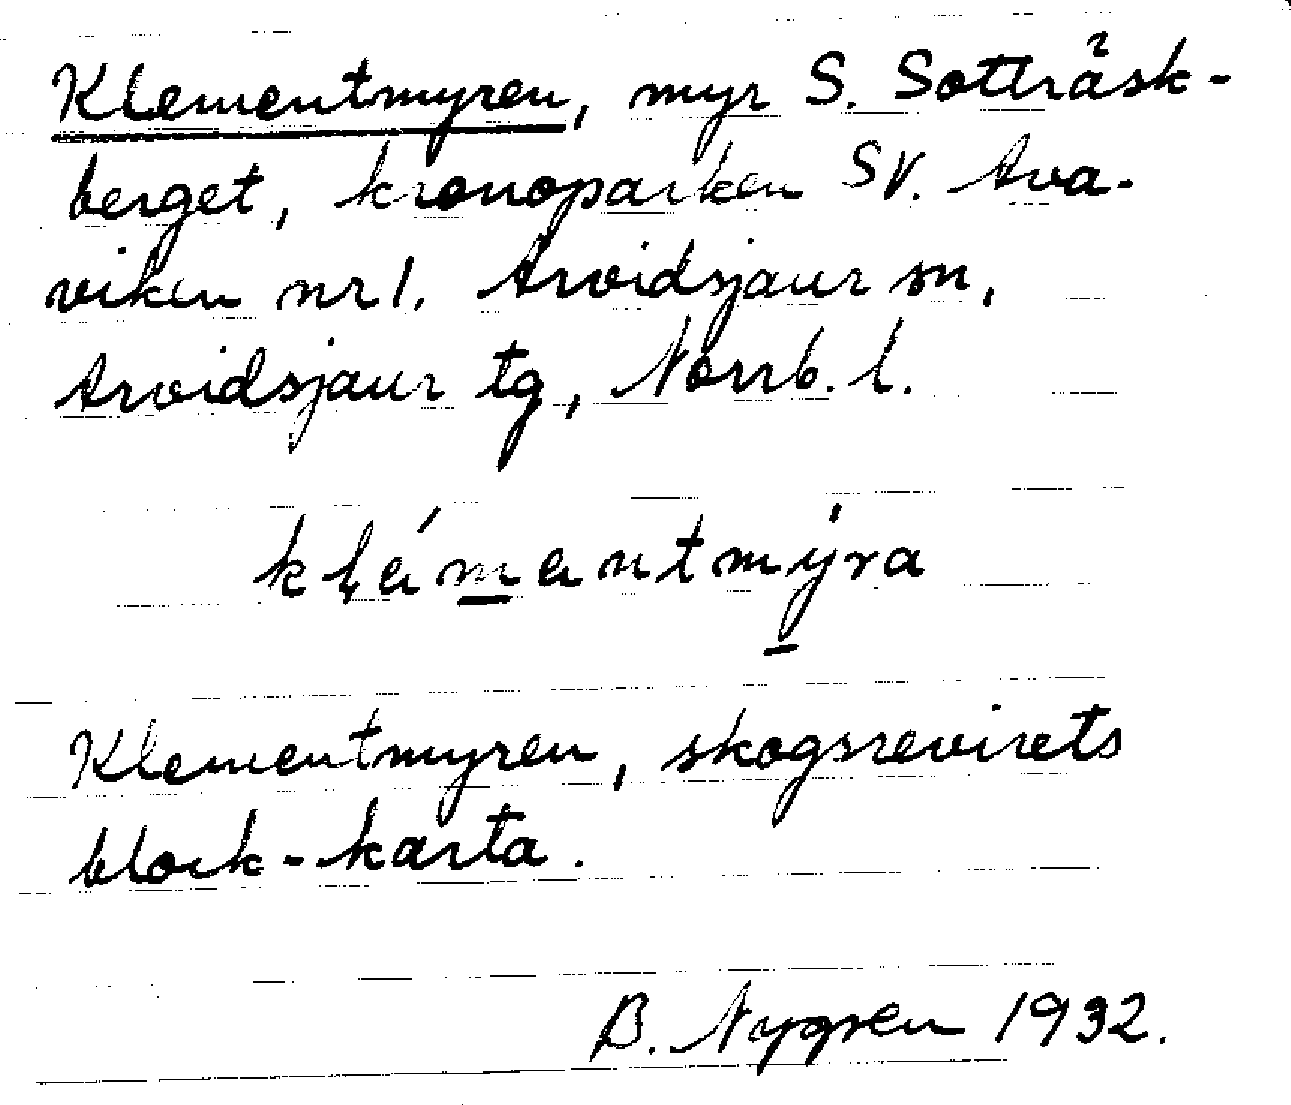 Klementmyren, myr S. Sotträsk-
berget, kronoparken SV. Ava-
viken nr 1. Arvidsjaur sn,
Arvidsjaur tg, Norrb. l.
klémentmýra
Klementmyren, skogsrevirets
block-karta.
B. Nygren 1932.